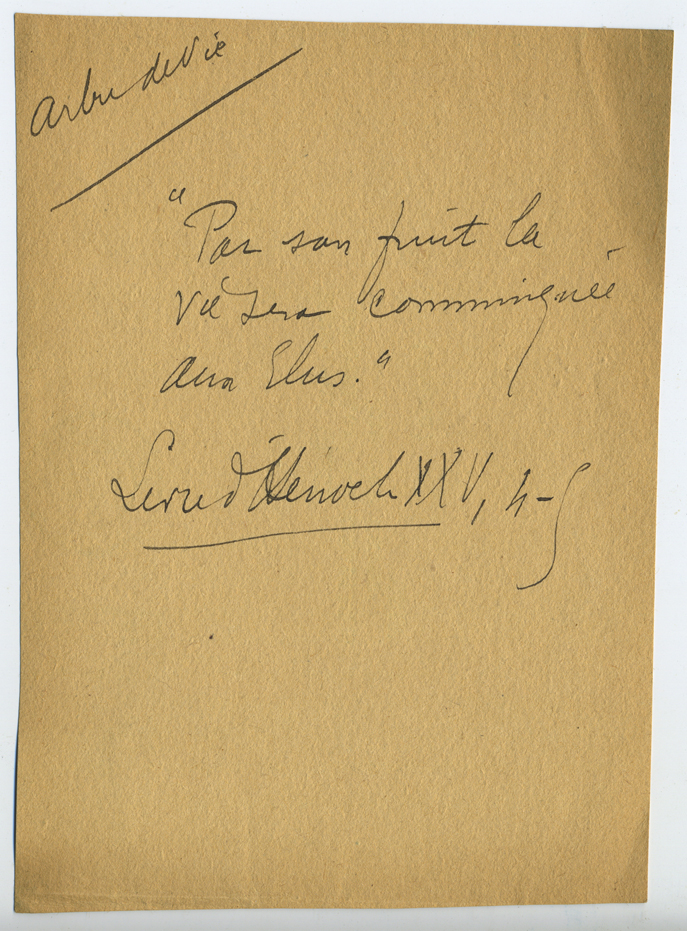 Arbre de Vie
"Par son fruit la
Vie sera communiquée
aux Elus."
Livre d'Hénoch XXV, 4-5